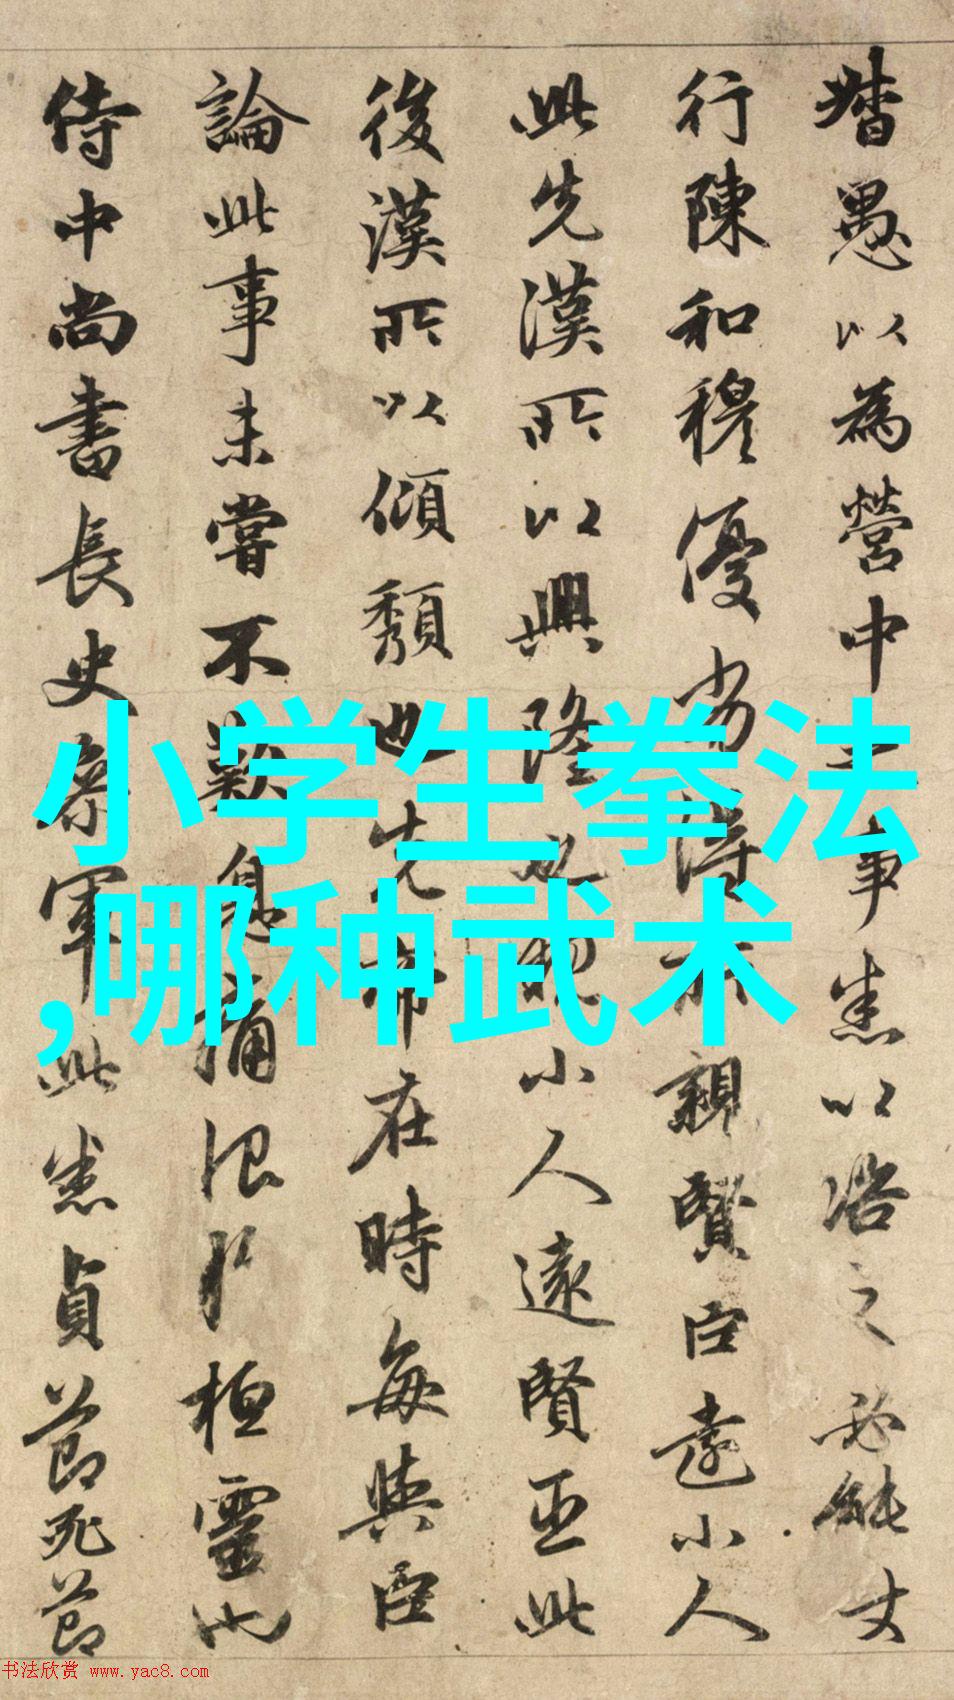 愚以為營中之事悉以之必能丈
行陳和穆優劣得所親賢臣遠小人
此先漢所以興隆也親小人遠賢臣此
後漢所以傾頹也先帝在時每與臣
論此事未嘗不歎息痛恨於桓靈也
侍中尚書長史參軍此悉貞節死節
小学生拳法
,哪种武术
书法欣赏 www.yac8.com